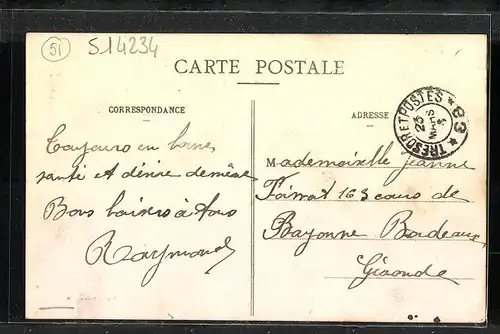 51
S14234
CARTE POSTALE
CORRESPONDANCE
ADRESSE
TRESOR ET POSTES * 83 *
23
MARS
Toujours en bonne
santé et désire de même
Bons baisers à tous
Raymond
Mademoiselle Jeanne
163 cours de
Bayonne Bordeaux
Gironde